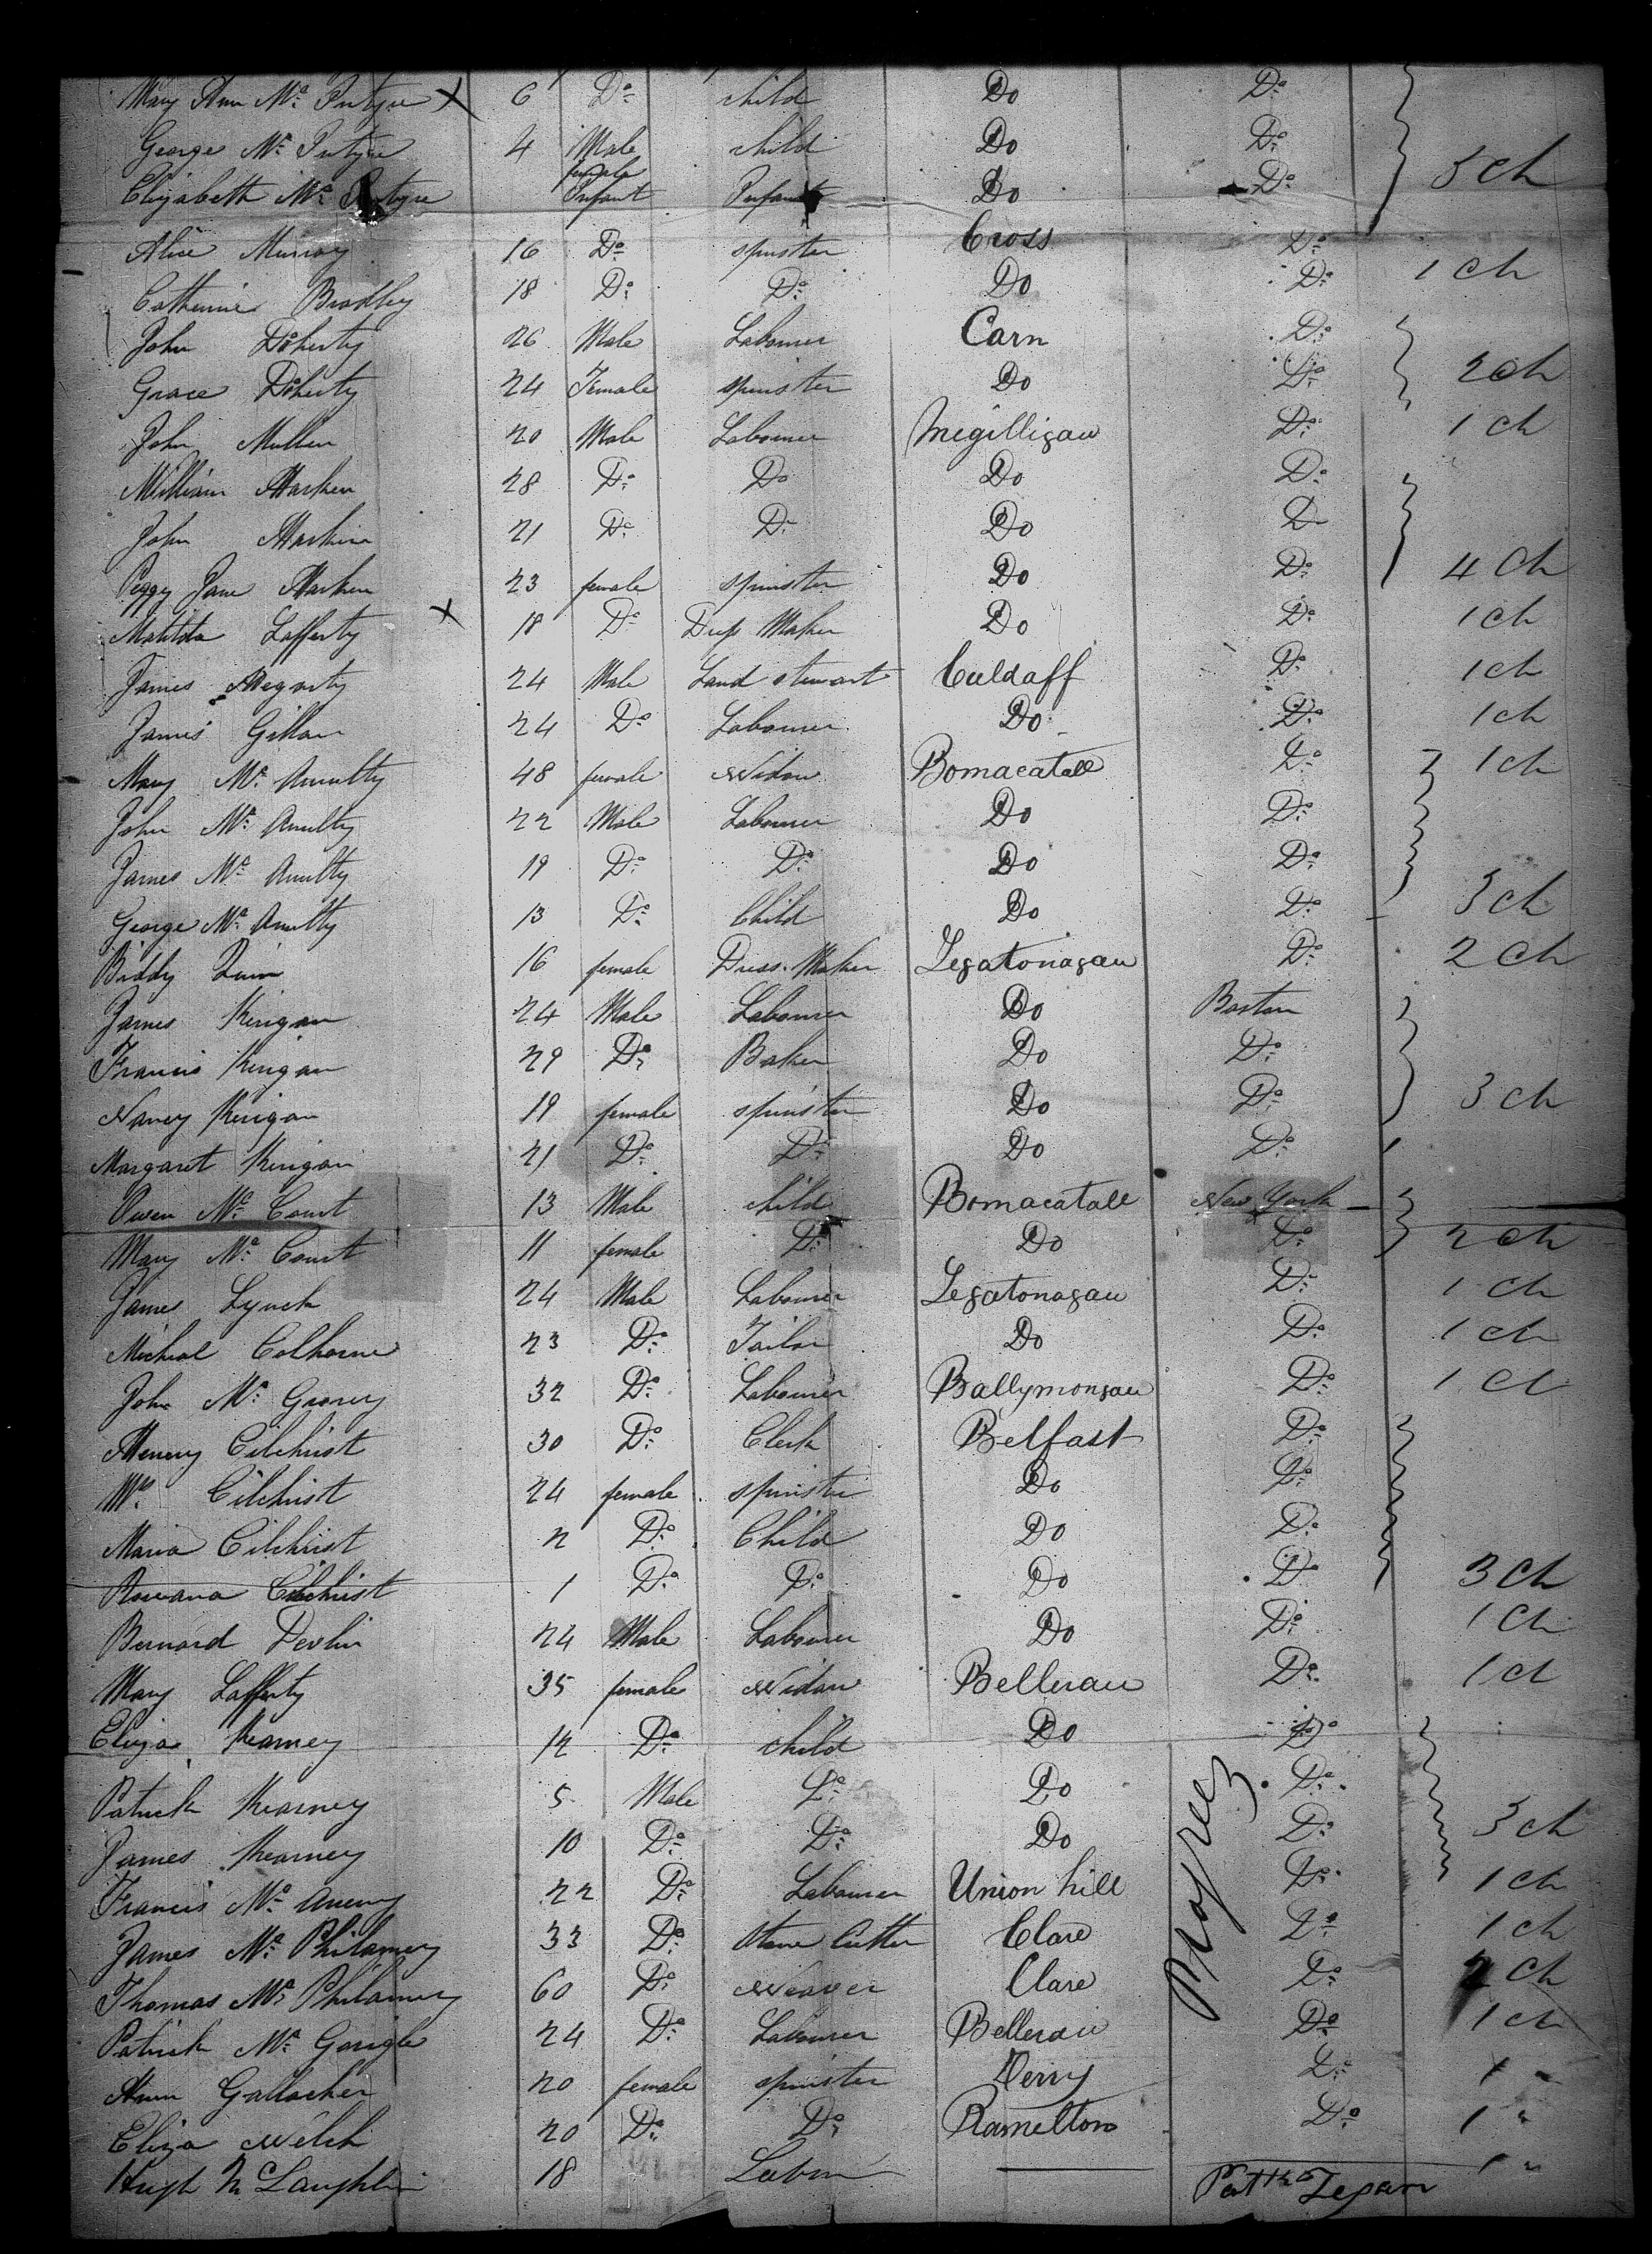 Mary Ann Mc Intyre X 6 Do child Do Do
George Mc Intyre 4 Male child Do Do
Elizabeth Mc Intyre female Infant Infant Do Do 5 ch
Alice Murray 16 Do spinster Cross Do 1 ch
Catherine Bradley 18 Do Do Do Do
John Doherty 26 Male Labourer Carn Do
Grace Doherty 24 Female spinster Do Do 2 ch
John Mullen 20 Male Labourer Megilligan Do 1 ch
William Harken 28 Do Do Do Do
John Harkin 21 Do Do Do Do
Peggy Jane Harken 23 female spinster Do Do 4 ch
Matilda Lafferty X 18 Do Dress Maker Do Do 1 ch
James Hegarty 24 Male Land stewart Culdaff Do 1 ch
James Gillan 24 Do Labourer Do Do 1 ch
Mary Mc Anulty 48 female Widow Bomacatall Do 1 ch
John Mc Anulty 22 Male Labourer Do Do
James Mc Anulty 19 Do Do Do Do
George Mc Anulty 13 Do Child Do Do 3 ch
Biddy Quin 16 female Dress Maker Legatonagan Do 2 ch
James Kerigan 24 Male Labourer Do Boston
Francis Kerigan 29 Do Baker Do Do
Nancy Kerigan 19 female spinster Do Do 3 ch
Margaret Kerigan 21 Do Do Do Do
Owen Mc Court 13 Male child Bomacatall New York
Mary Mc Court 11 female Do Do Do 2 ch
James Lynch 24 Male Labourer Legatonagan Do 1 ch
Micheal Colhorne 23 Do Tailor Do Do 1 ch
John Mc Groney 32 Do Labourer Ballymongan Do 1 ch
Henery Cilchrist 30 Do Clerk Belfast Do
Cilchrist 24 female spinster Do Do
Maria Cilchrist 2 Do Child Do Do
Rowana Cilchrist 1 Do Do Do Do 3 ch
Bernard Devlin 24 Male Labourer Do Do 1 ch
Mary Lafferty 35 female Widow Bellenau Do 1 ch
Eliza Kearney 12 Do child Do Do
Patrick Kearney 5 Male Do Do Do
James Kearney 10 Do Do Do Do 3 ch
Francis Mc 22 Do Labourer Union hill Do 1 ch
James Mc Philamey 33 Do Stone Cutter Clare Do 1 ch
Thomas Mc Philamey 60 Do Weaver Clare Do 2 ch
Patrick Mc Gonigle 24 Do Labourer Bellenau Do 1 ch
Ann Gallacher 20 female spinster Derry Do 1 "
Eliza Welch 20 Do Do Ramelton Do 1 "
Hugh Mc Laughlin 18 Labour 1 "